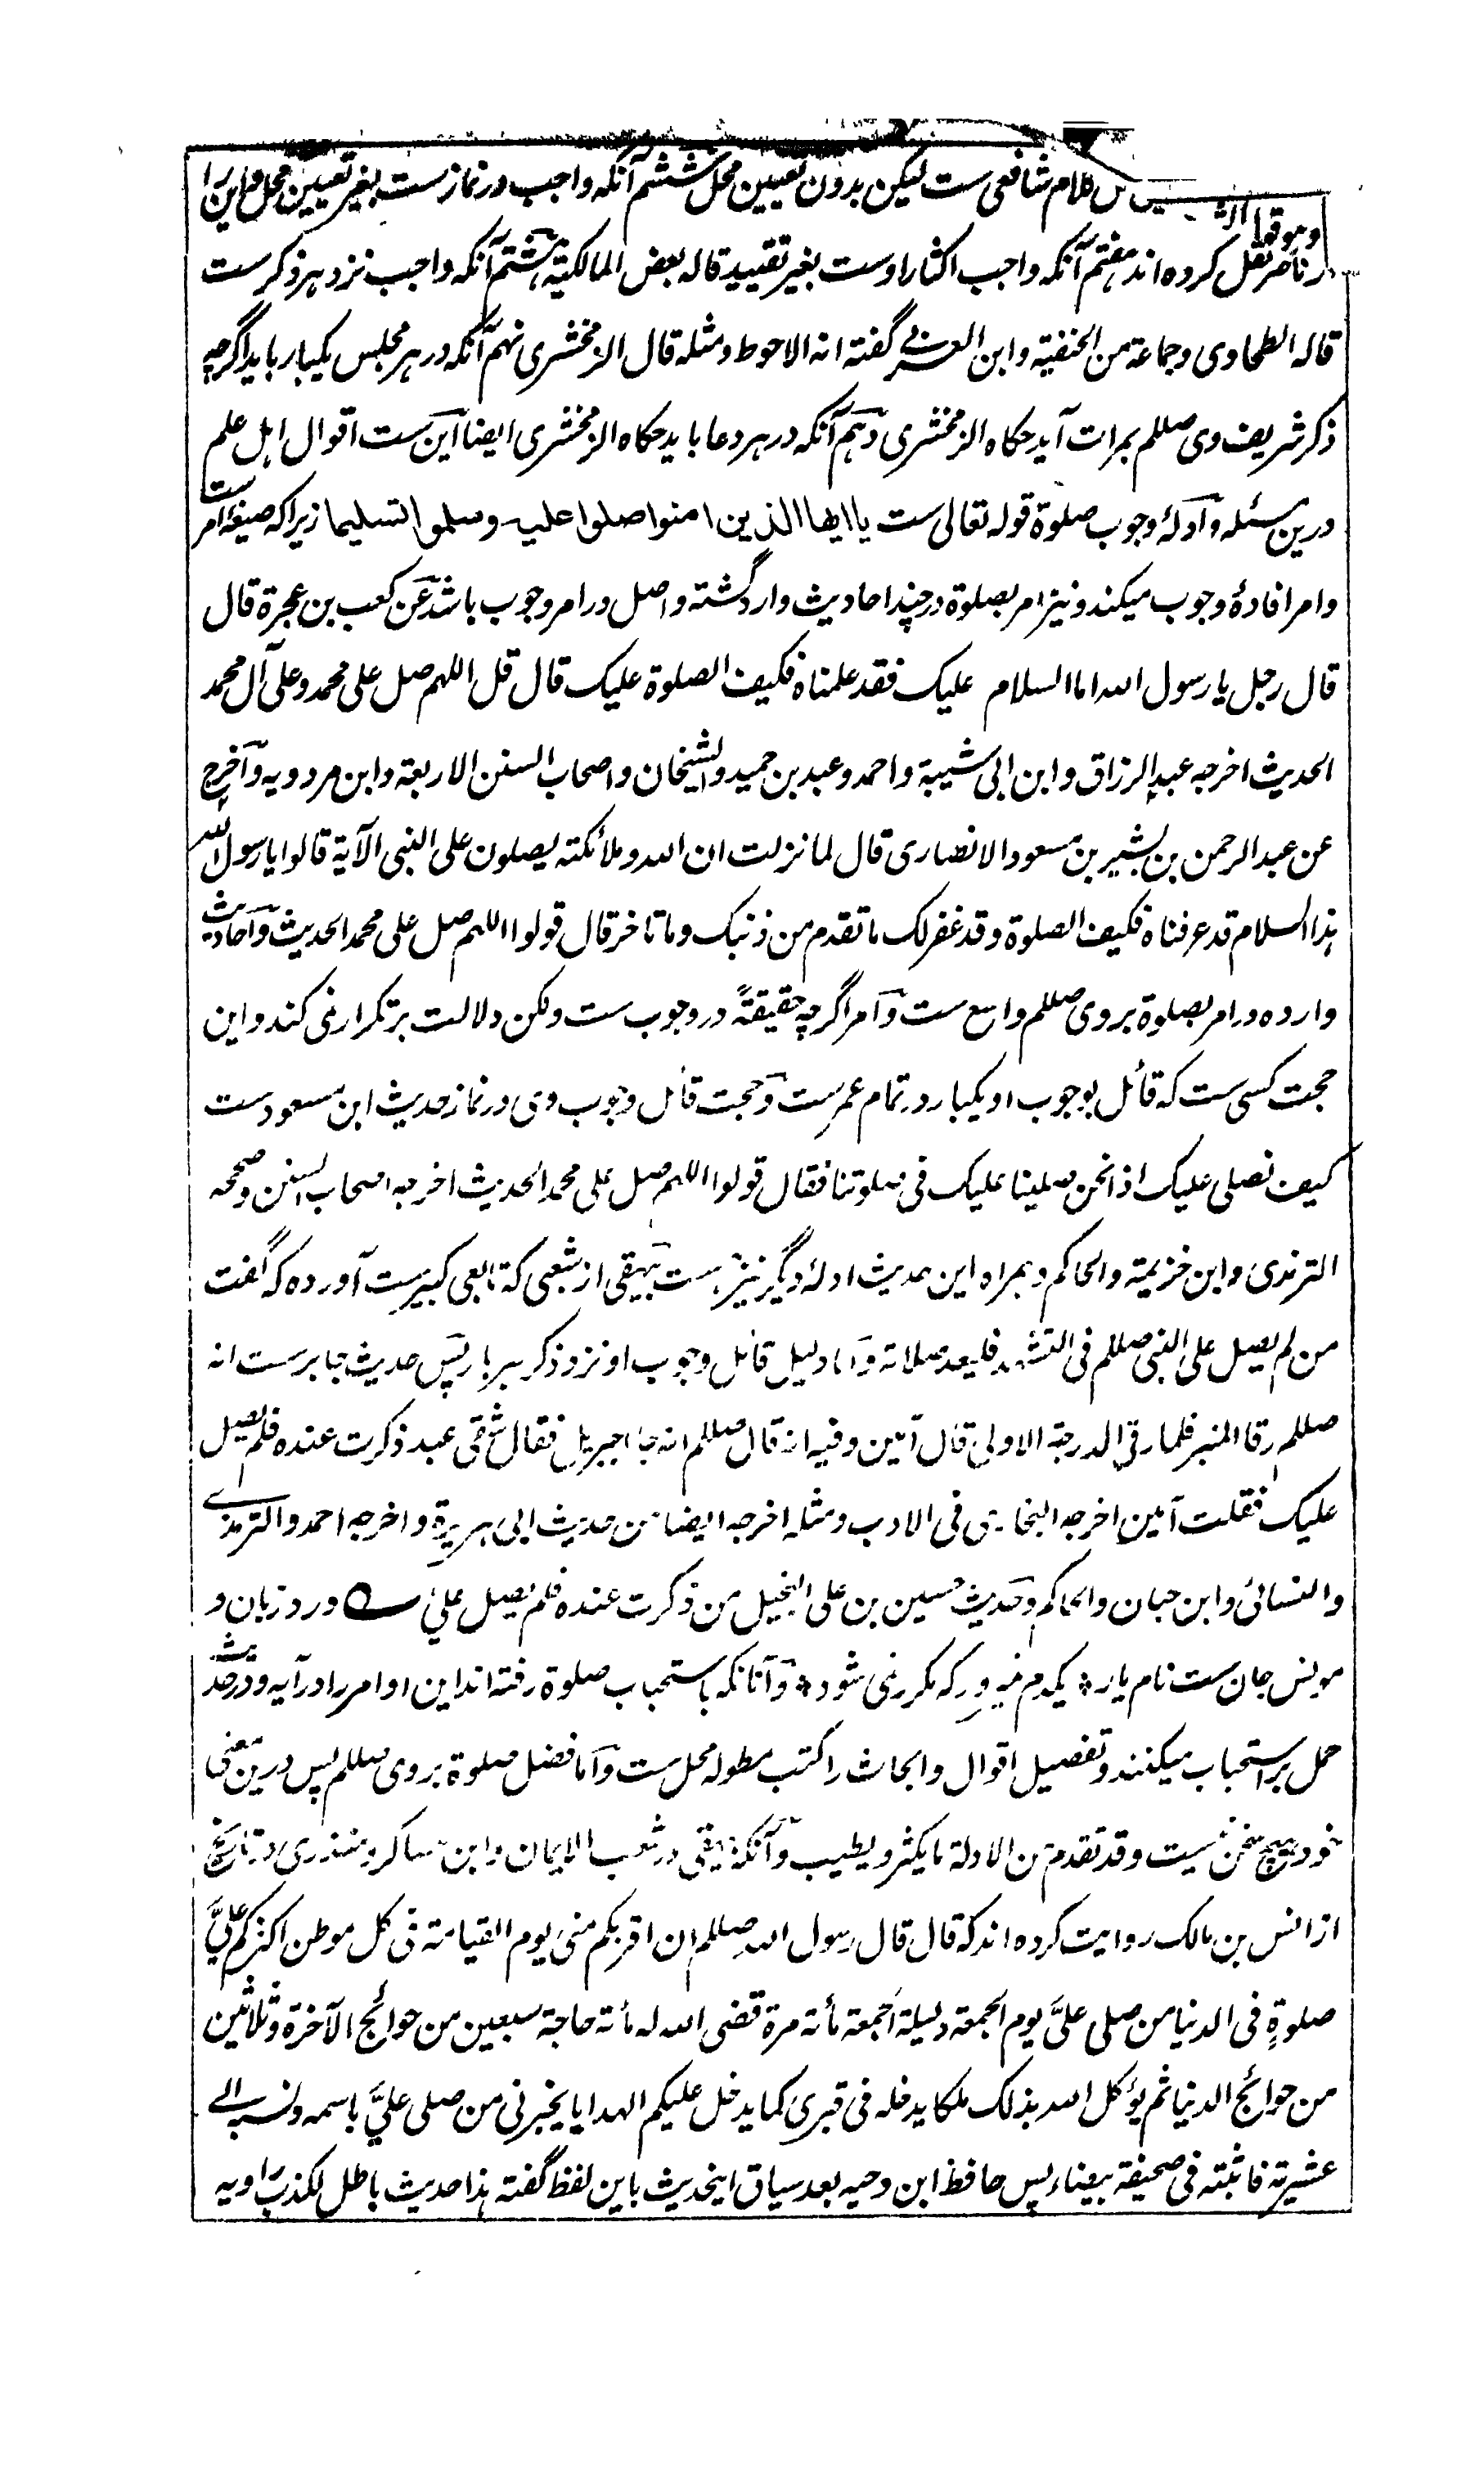 کلام شافعی ست لیکن بدون تعیین محل ششم آنکه واجب در نماز ست بغیر تعیین محل و این را
ناصر نقل کرده اند هفتم آنکه واجب اکثار اوست بغیر تقیید قاله بعض المالکیة هشتم آنکه واجب نزد هر ذکر ست
قاله الطحاوی و جماعة من الحنفیة و ابن العربی گفته انه الاحوط و مثله قال الزمخشری نهم آنکه در هر مجلس یکبار باید اگرچه
ذکر شریف وی صللم بمرات آید حکاه الزمخشری دهم آنکه در هر دعا باید حکاه الزمخشری ایضا این ست اقوال اهل علم
درین مسئله و ادلهٔ وجوب صلوة قوله تعالی ست یا ایها الذین امنوا صلوا علیه وسلموا تسلیما زیراکه صیغهٔ امر ست
وامر افادهٔ وجوب میکند و نیز امر بصلوة در چند احادیث وارد گشته و اصل در امر وجوب باشد عن کعب بن عجرة قال
قال رجل یا رسول الله اما السلام علیک فقد علمناه فکیف الصلوة علیک قال قل اللهم صل علی محمد و علی آل محمد
الحدیث اخرجه عبد الرزاق و ابن ابی شیبة و احمد و عبد بن حمید و الشیخان و اصحاب السنن الاربعة و ابن مردویه و اخرج
عن عبد الرحمن بن بشیر بن مسعود الانصاری قال لما نزلت ان الله و ملائکته یصلون علی النبی الآیة قالوا یا رسول الله
هذا السلام قد عرفناه فکیف الصلوة و قد غفر لک ما تقدم من ذنبک و ما تاخر قال قولوا اللهم صل علی محمد الحدیث و احادیث
وارده در امر بصلوة بر وی صللم واسع ست و امر اگرچه حقیقةً در وجوب ست و لکن دلالت بر تکرار نمی کند و این
حجت کسی ست که قائل بوجوب او یکبار در تمام عمر ست و حجت قائل وجوب وی در نماز حدیث ابن مسعود ست
کیف نصلی علیک اذا نحن صلینا علیک فی صلوتنا فقال قولوا اللهم صل علی محمد الحدیث اخرجه اصحاب السنن و صححه
الترمذی و ابن خزیمة و الحاکم و همراه این حدیث ادلهٔ دیگر نیز هست بیهقی از شعبی که تابعی کبیر ست آورده که گفت
من لم یصل علی النبی صللم فی التشهد فلیعد صلاته و اما دلیل قائل وجوب او نزد ذکر هر بار پس حدیث جابر ست انه
صللم رقا المنبر فلما رقی الدرجة الاولی قال آمین و فیه انه قال صللم انه جاء جبریل فقال شقی عبد ذکرت عنده فلم یصل
علیک فقلت آمین اخرجه البخاری فی الادب و مثله اخرجه ایضا من حدیث ابی هریرة و اخرجه احمد و الترمذی
و النسائی و ابن حبان و الحاکم و حدیث حسین بن علی البخیل من ذکرت عنده فلم یصل علیّ ورد زبان و
مونس جان ست نام یار یکدم نمیرود که مکرر نمی شود و آنانکه باستحباب صلوة رفته اند این اوامر را در آیه و در حدیث
حمل بر استحباب میکنند و تفصیل اقوال و ابحاث را کتب مطوله محل ست و اما فضل صلوة بر وی صللم پس درین معنی
خود هیچ سخن نیست و قد تقدم من الادلة ما یکثر و یطیب و آنکه بیهقی در شعب الایمان و ابن عساکر و منذری در تاریخ
از انس بن مالک روایت کرده اند که قال قال رسول الله صللم ان اقربکم منی یوم القیامة فی کل موطن اکثرکم علیَّ
صلوةٍ فی الدنیا من صلی علیَّ یوم الجمعة و لیلة الجمعة مأة مرة قضی الله له مأة حاجة سبعین من حوائج الآخرة و ثلاثین
من حوائج الدنیا ثم یؤکل الله بذلک ملکا یدخله فی قبری کما یدخل علیکم الهدایا یخبرنی من صلی علیَّ باسمه و نسبه الی
عشیرته فاثبته فی صحیفة بیضاء پس حافظ ابن دحیه بعد سیاق اینحدیث باین لفظ گفته هذا حدیث باطل لکذب راویه